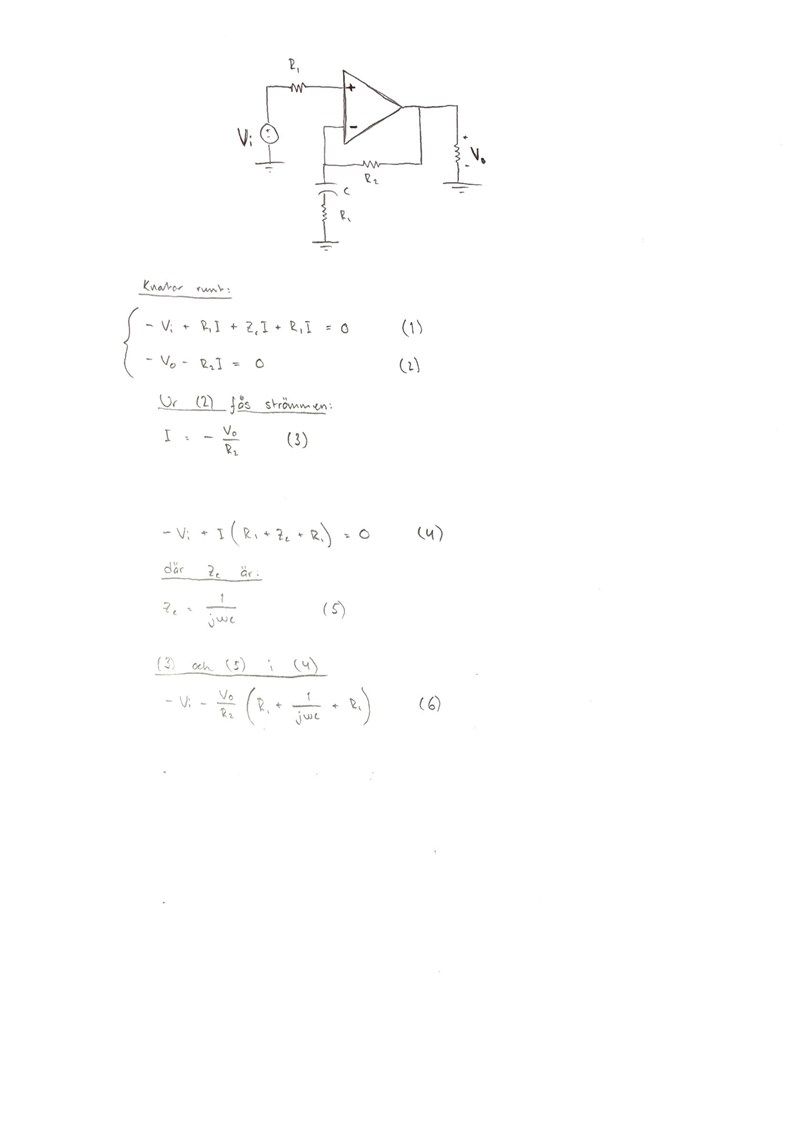 R₁
+
−
Vi
R₂
C
R₁
+
V₀
−
Knator runt:
− Vi + R₁I + Z꜀I + R₁I = 0 (1)
− V₀ − R₂I = 0 (2)
Ur (2) fås strömmen:
I = − V₀/R₂ (3)
− Vi + I(R₁ + Z꜀ + R₁) = 0 (4)
där Z꜀ är:
Z꜀ = 1/jωc (5)
(3) och (5) i (4)
− Vi − V₀/R₂ (R₁ + 1/jωc + R₁) (6)